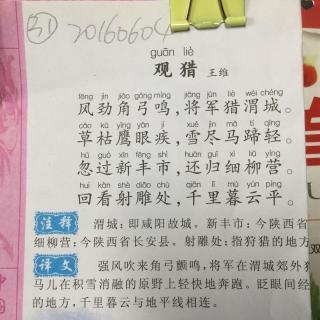 31 20160604
guān liè
观 猎 王维
fēng jìn jiǎo gōng míng jiāng jūn liè wèi chéng
风劲角弓鸣，将军猎渭城。
cǎo kū yīng yǎn jí xuě jìn mǎ tí qīng
草枯鹰眼疾，雪尽马蹄轻。
hū guò xīn fēng shì huán guī xì liǔ yíng
忽过新丰市，还归细柳营。
huí kàn shè diāo chù qiān lǐ mù yún píng
回看射雕处，千里暮云平。
注释 渭城：即咸阳故城。新丰市：今陕西省
细柳营：今陕西省长安县。射雕处：指狩猎的地方
译文 强风吹来角弓颤鸣，将军在渭城郊外
马儿在积雪消融的原野上轻快地奔跑。眨眼间经
的地方，千里暮云与地平线相连。